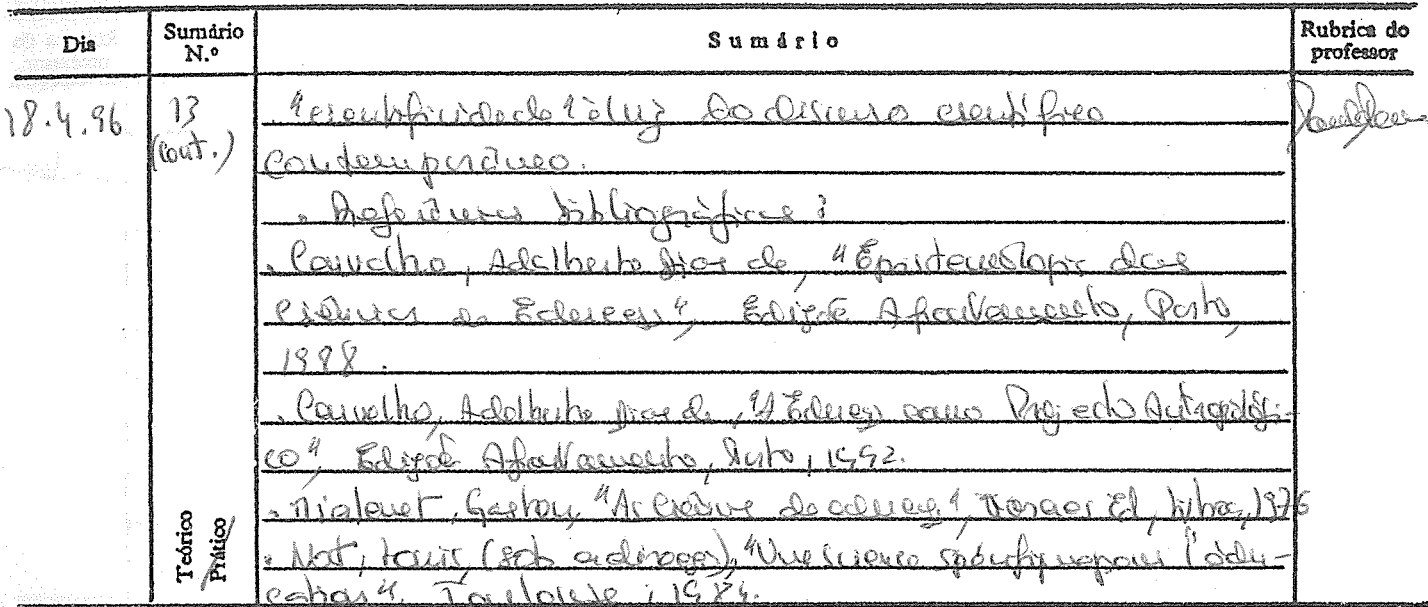 Dia Sumário N.º Sumário Rubrica do professor
18.4.96 13 (cont.) "cientificidade" à luz do discurso científico
contemporâneo.
. Referências bibliográficas:
. Carvalho, Adalberto Dias de, "Epistemologia das
Ciências da Educação", Edições Afrontamento, Porto,
1988.
. Carvalho, Adalberto Dias de, "A Educação como Projecto Antropológi-
co", Edições Afrontamento, Porto, 1992.
. Mialaret, Gaston, "As Ciências da educação", Moraes Ed, Lisboa, 1976
. Not, Louis, (sob a direcção), "Une science spécifique pour l'édu-
cation", Toulouse, 1984.
Teórico
Prático